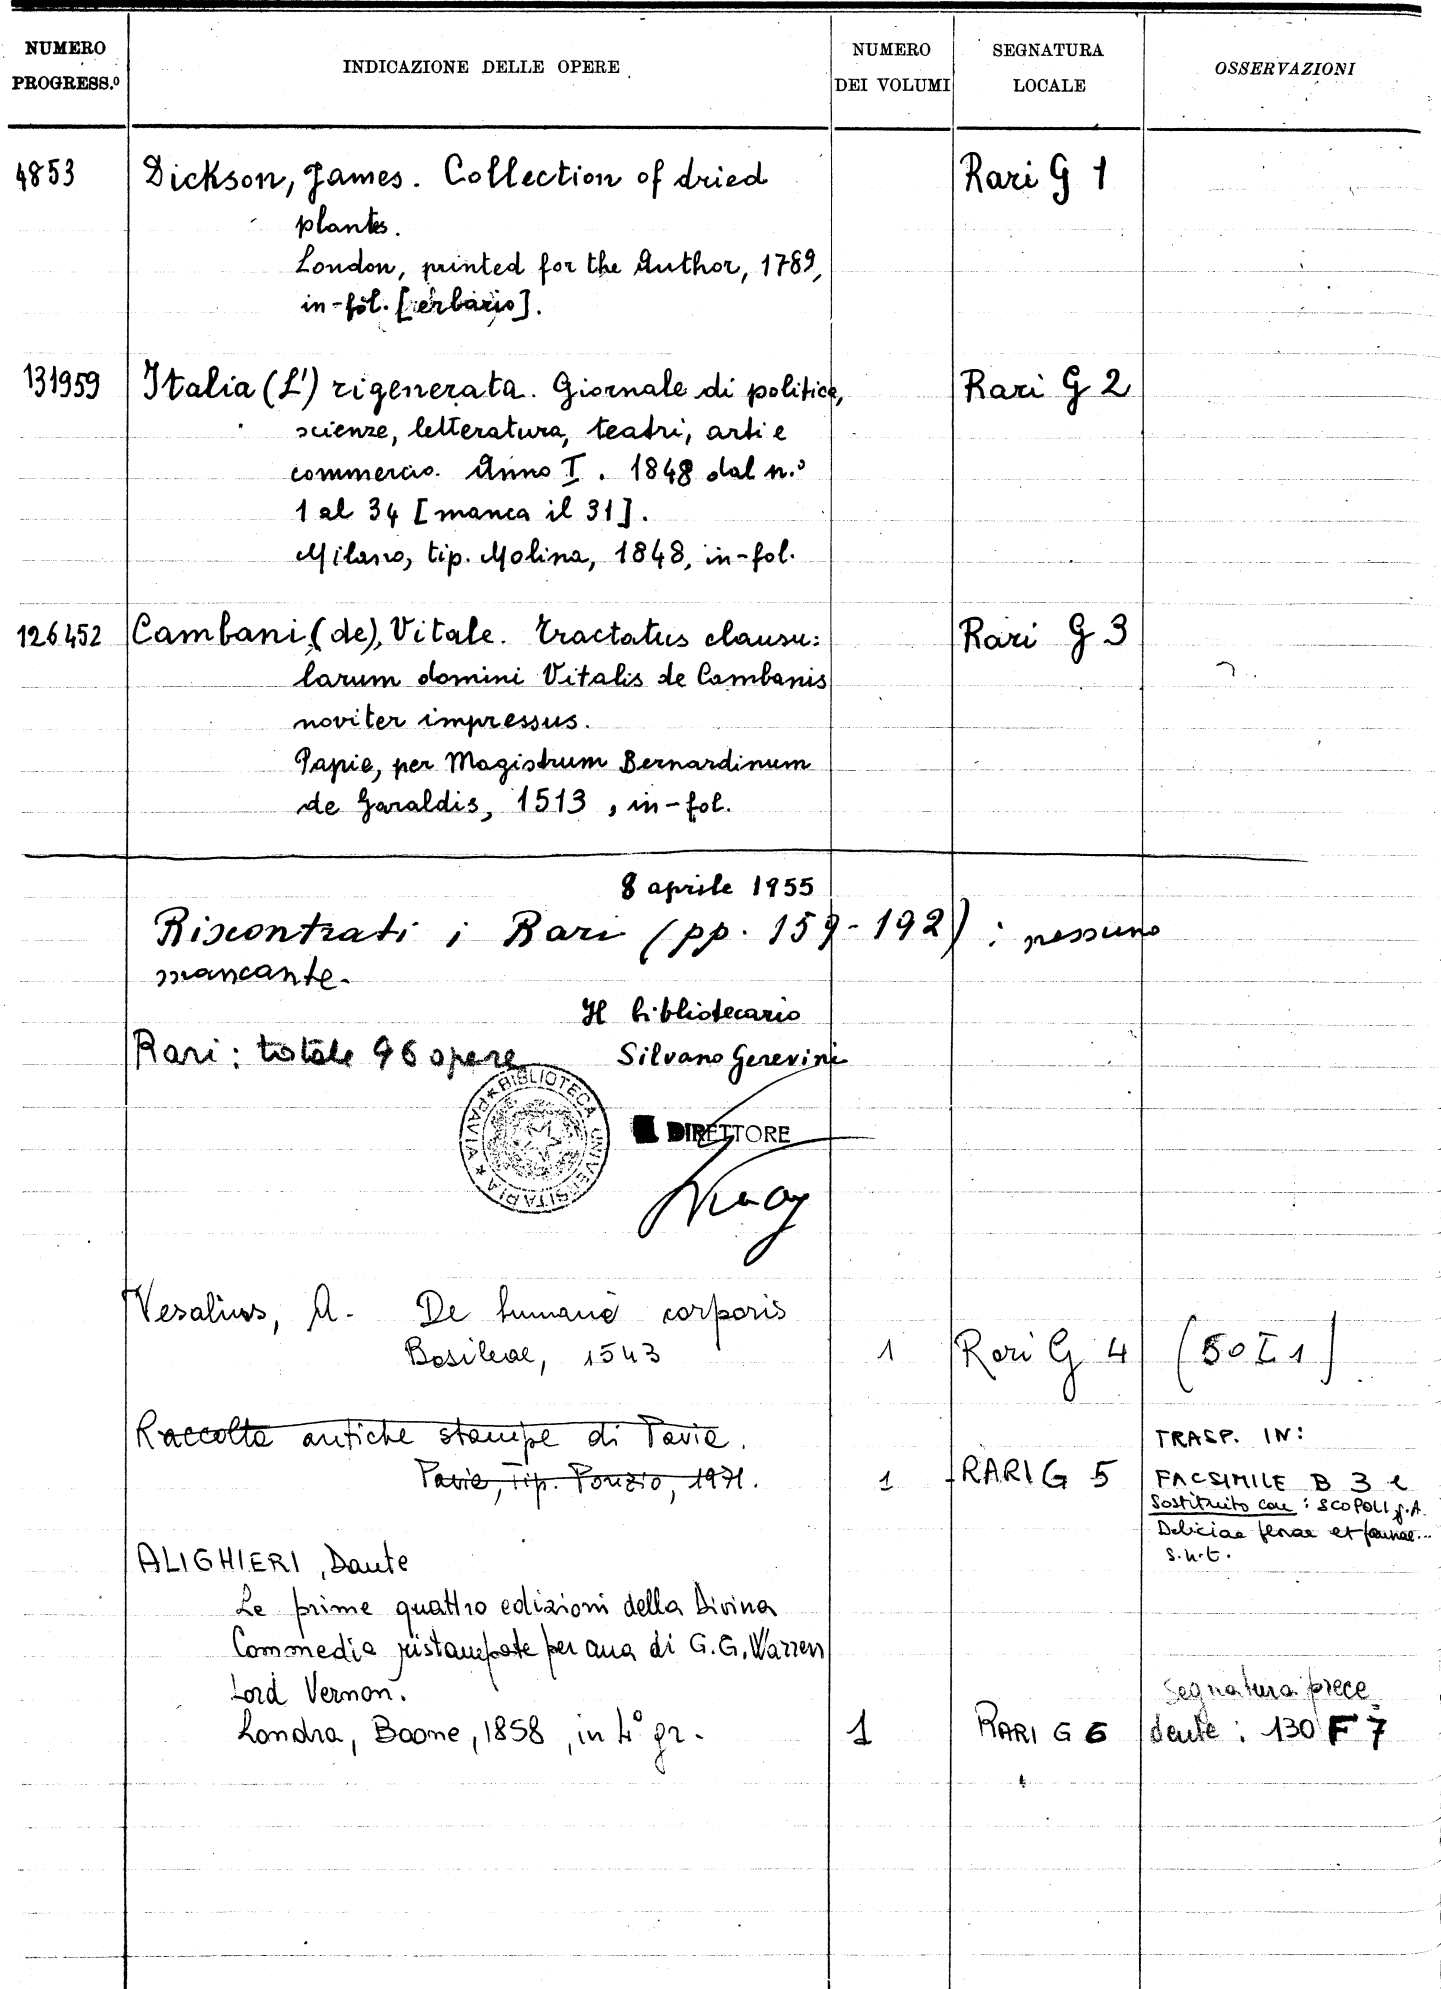 NUMERO PROGRESS.º
INDICAZIONE DELLE OPERE
NUMERO DEI VOLUMI
SEGNATURA LOCALE
OSSERVAZIONI
4853 Dickson, James. Collection of dried Rari G 1
plantes.
London, printed for the Author, 1789,
in-fol. [erbario].
131959 Italia (L') rigenerata. Giornale di politica, Rari G 2
scienze, letteratura, teatri, arti e
commercio. Anno I. 1848 dal n.º
1 al 34 [manca il 31].
Milano, tip. Molina, 1848, in-fol.
126452 Cambani (de), Vitale. Tractatus clausu: Rari G 3
larum domini Vitalis de Cambanis
noviter impressus.
Papie, per Magistrum Bernardinum
de Garaldis, 1513, in-fol.
8 aprile 1955
Riscontrati i Rari (pp. 159-192): nessuno
mancante.
Il bibliotecario
Rari: totale 96 opere Silvano Gerevini
BIBLIOTECA UNIVERSITARIA ★ PAVIA ★
DIRETTORE
Vesalius, A. De humano corporis
Basileae, 1543 1 Rari G 4 (50 I 1)
Raccolta antiche stampe di Pavia.
Pavia, Tip. Ponzio, 1971. 1 RARI G 5
TRASP. IN:
FACSIMILE B 3
Sostituito con: SCOPOLI, J.A.
Deliciae florae et faunae...
s.n.t.
ALIGHIERI, Dante
Le prime quattro edizioni della Divina
Commedia ristampate per cura di G.G. Warren
Lord Vernon.
Londra, Boone, 1858, in 4º gr. 1 RARI G 6
Segnatura prece
dente: 130 F 7